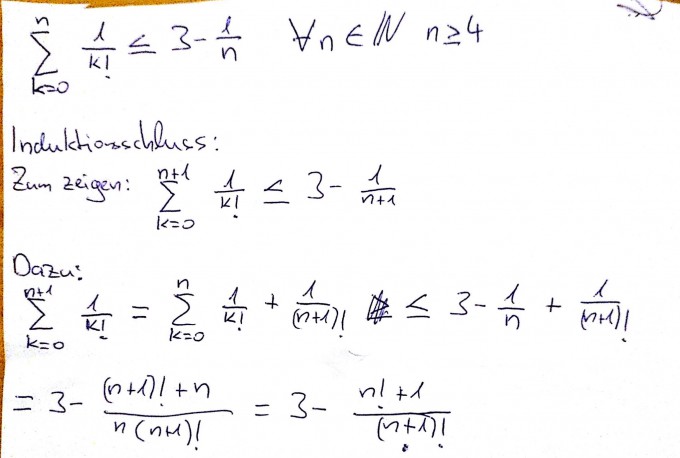 ∑_{k=0}^{n} 1/k! ≤ 3 - 1/n ∀n ∈ ℕ n ≥ 4
Induktionsschluss:
Zum zeigen: ∑_{k=0}^{n+1} 1/k! ≤ 3 - 1/(n+1)
Dazu:
∑_{k=0}^{n+1} 1/k! = ∑_{k=0}^{n} 1/k! + 1/(n+1)! ≤ 3 - 1/n + 1/(n+1)!
= 3 - ((n+1)! + n)/(n(n+1)!) = 3 - (n! + 1)/(n+1)!